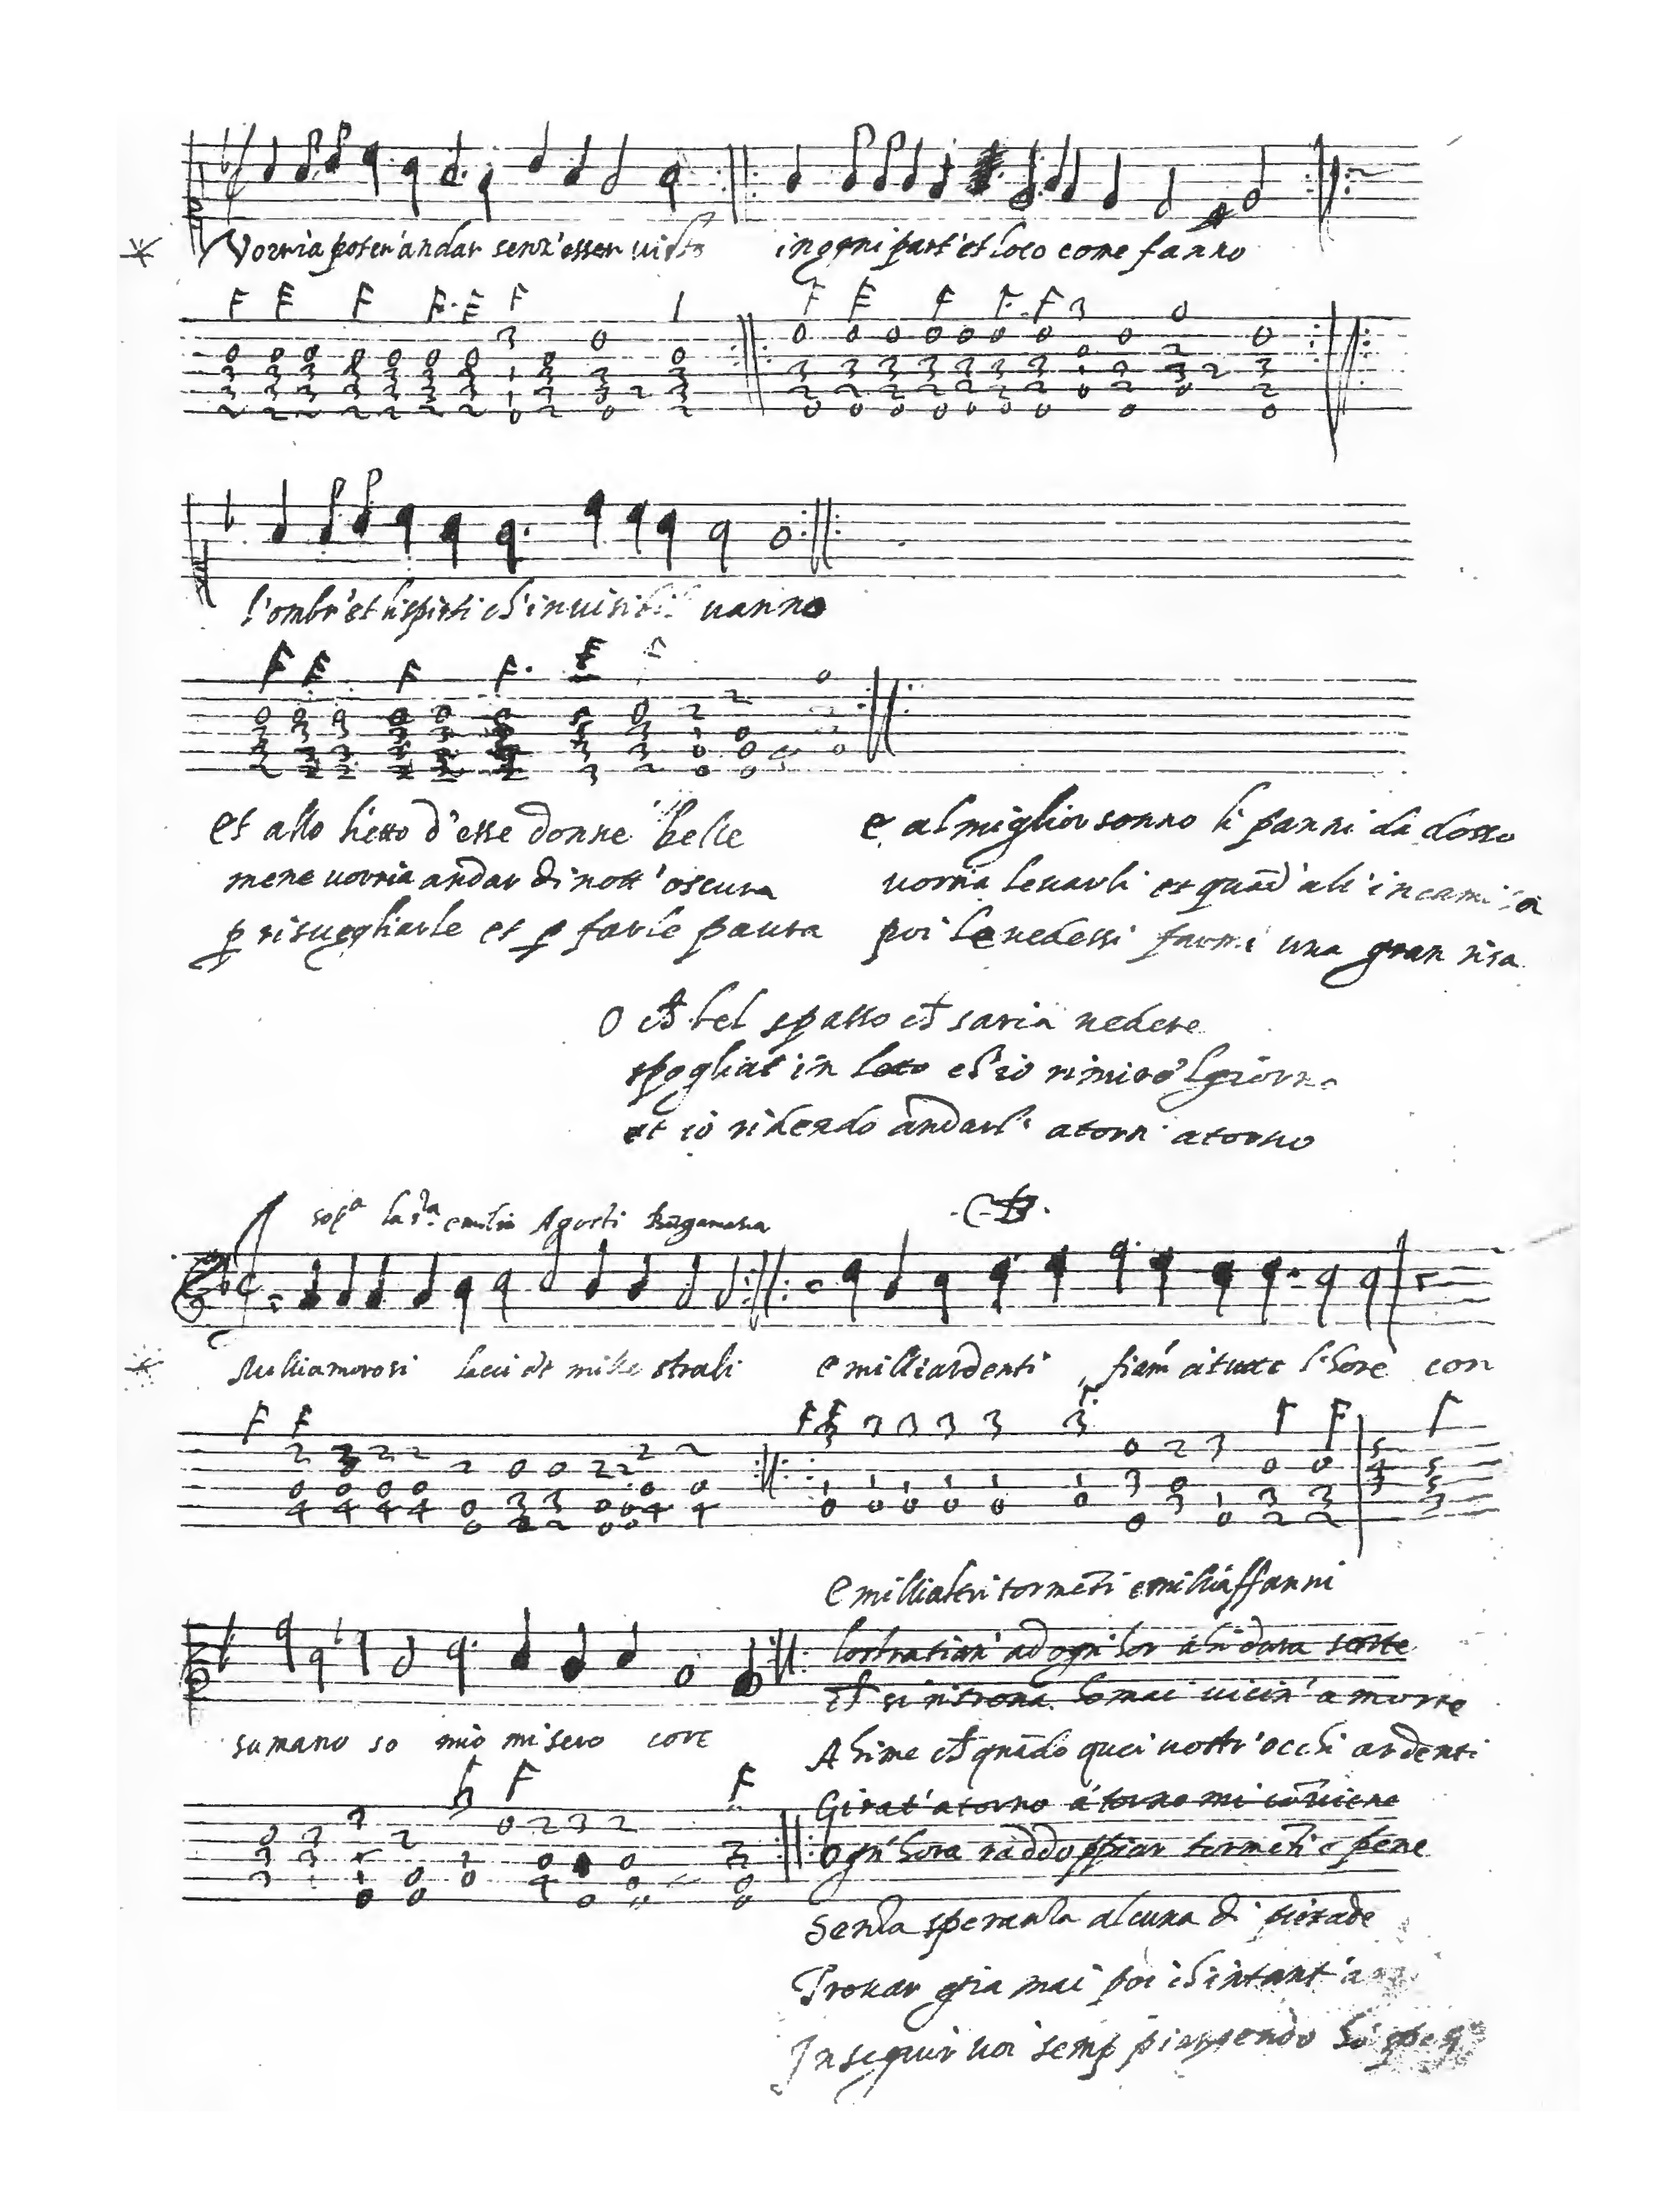 Vorria poter'andar senz'esser visto in ogni part'et loco come fanno
l'ombr'et li spirti ch'invisibil vanno
Et allo lietto d'esse donne belle
mene vorria andar di nott'oscura
p risvegliarle et p farle paura
e al miglior sonno li panni da dosso
vorria levarli et quãd'ali'in camisa
poi le vedessi farmi una gran risa
O ch bel spasso ch saria vedere
spogliat'in letto ch'io rimiro'l giorno
et io ridendo andarli atorn'atorno
sopa la sra emilia Agosti Bergamasca
Milli amorosi lacci et mille strali e milli ardenti fiam' a tutte l'hore con
sumano so mio misero core
E milli altri tormẽti e milli affanni
ad ogn'hor ahi dura sorte
ch si ritrova homai vicin'a morte
Ahime ch quãdo quei vostr'occhi ardenti
Girat'atorno a torno mi cõviene
Ogn'hora raddoppiar tormẽti e pene
Senza speranza alcuna di pietade
Trovar gia mai poi ch'in tant'
In seguir voi semp piangendo